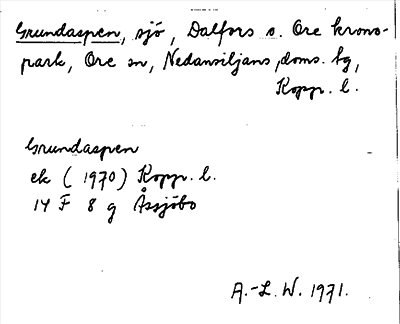 Grundaspen, sjö, Dalfors o. Ore krono-
park, Ore sn, Nedansiljans doms. tg,
Kopp. l.
Grundaspen
ek (1970) Kopp. l.
14 F 8 g Åssjöbo
A.-L. W. 1971.